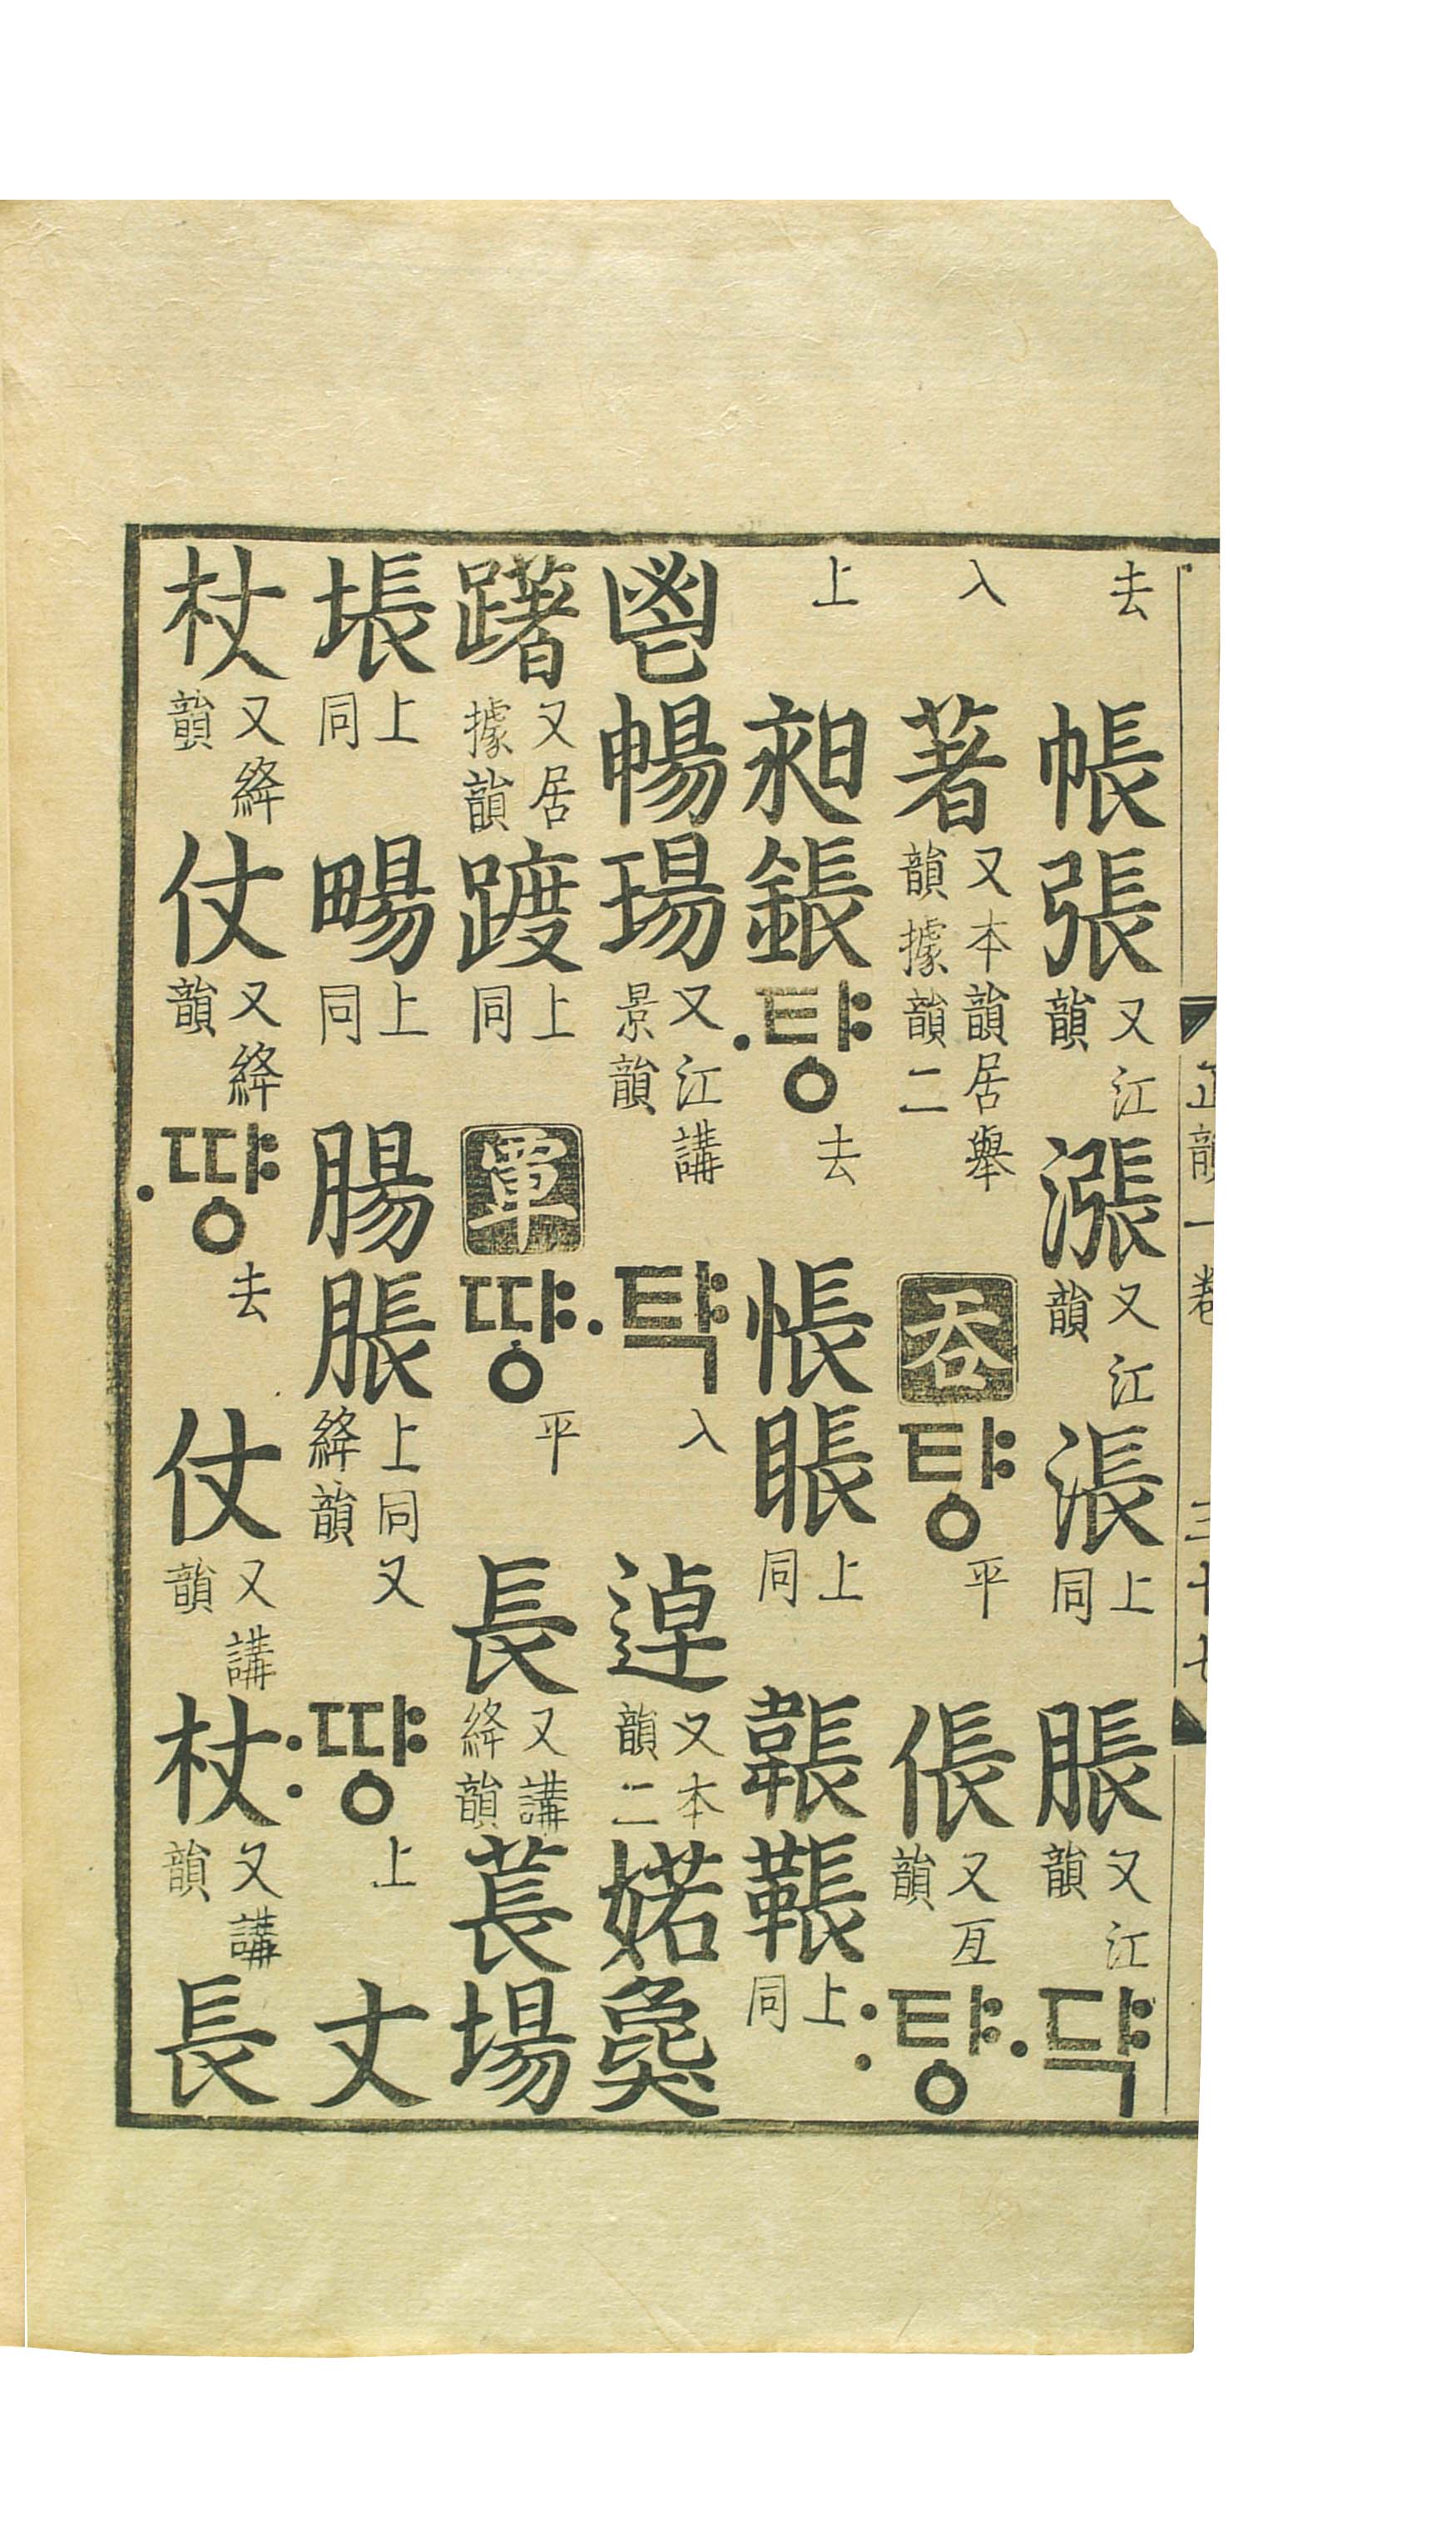 去帳張又江韻漲又江韻涱上同脹又江韻·댝
入著又本韻居舉韻據韻二呑턍平倀又亙韻:턍
上昶鋹·턍去悵瞕上同韔䩨上同
鬯暢瑒又江講景韻·턕入逴又本韻二婼㲋
躇又居據韻踱上同覃땽平長又講絳韻萇場
塲上同畼上同腸脹上同又絳韻:땽上丈
杖又絳韻仗又絳韻·땽去仗又講韻杖又講韻長
正韻一卷 三十七